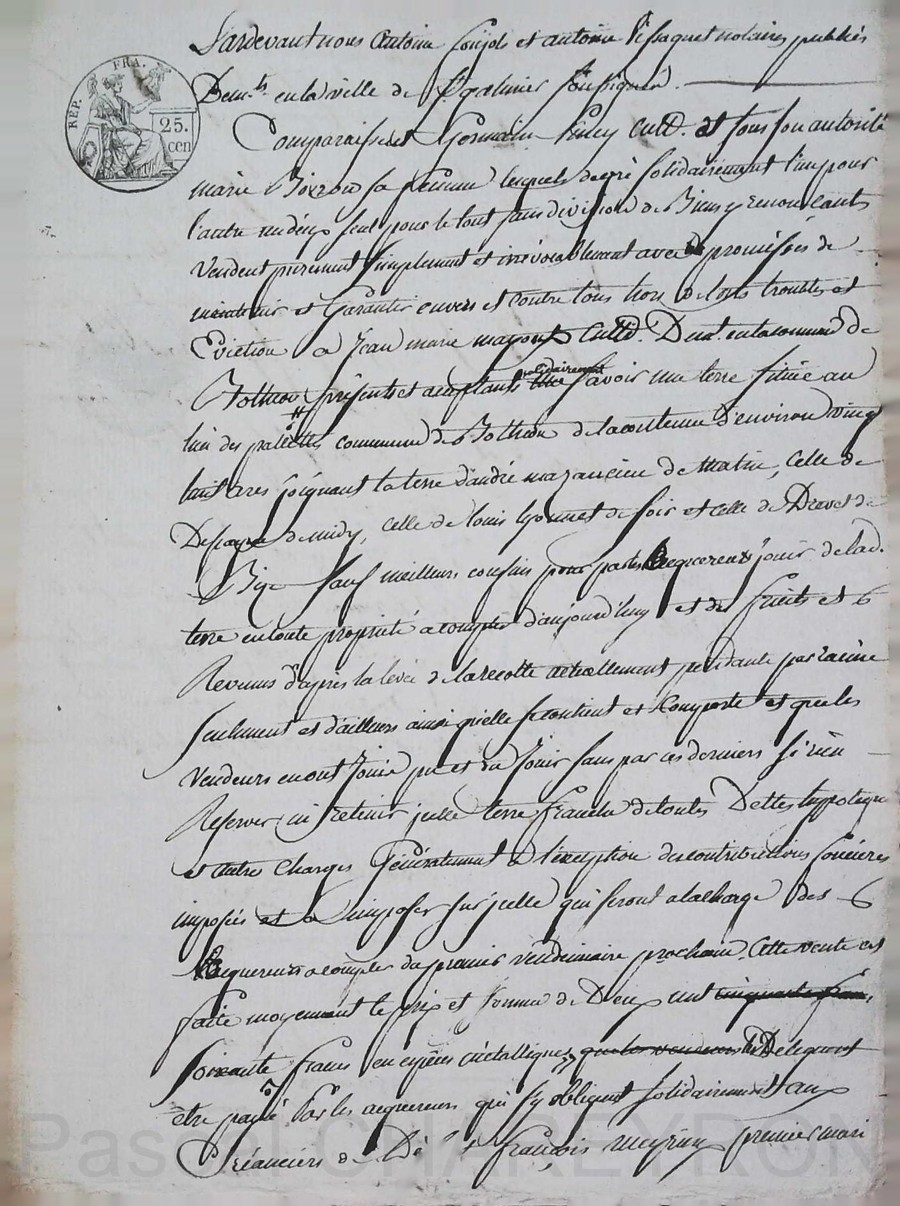 REP. FRA.
25.
cen
Pardevant nous Antoine et antoine notaires publics
Deurts en la ville de St galmier soussignés
Comparaissent Germain Piney Cultr. et sous son autorité
marie sa femme lesquels de gré solidairement l'un pour
l'autre un deux seul pour le tout sans division de Biens y renoncants
Vendent purement simplement et irrévocablement avec promesses de
maintenir et Garantir envers et contre tous hors de tous troubles et
Eviction a Jean marie Cultr. Demt. en la commune de
Bothéon présents et acceptants savoir une terre située au
lieu des commune de Bothéon de la contenue d'environ vingt
huit ares joignant la terre d'andré mazancieu de Matin, Celle de
de midy, celle de louis lyonnet de soir et celle de Drevet de
Bize sauf meilleurs confins pour par les acquereurs jouir de lad.
terre en toute propriété a compter d'aujourd'huy et des fruits et
Revenus d'après la levée de la recolte actuellement pendante par racine
seulement et d'ailleurs ainsi qu'elle se contient et Comporte et que les
Vendeurs en ont Jouir pu et du Jouir sans par ces derniers si rien
Reserver ni retenir jcelle terre franche de toutes Dettes hypoteque
et autre Charges Généralement a l'exception des contributions foncières
imposées et a imposer sur jcelle qui seront a la charge des
acquereurs a compter du premier vendemiaire prochain. Cette vente est
faite moyennant le prix et somme de Deux cent cinquante fran
Soixante francs en espèces métalliques, que les vendeurs Deleguent
être payé Par les acquereurs qui s'y obligent solidairement aux
Créanciers de françois meyrieux premier mari
Pascal CHAREYRON